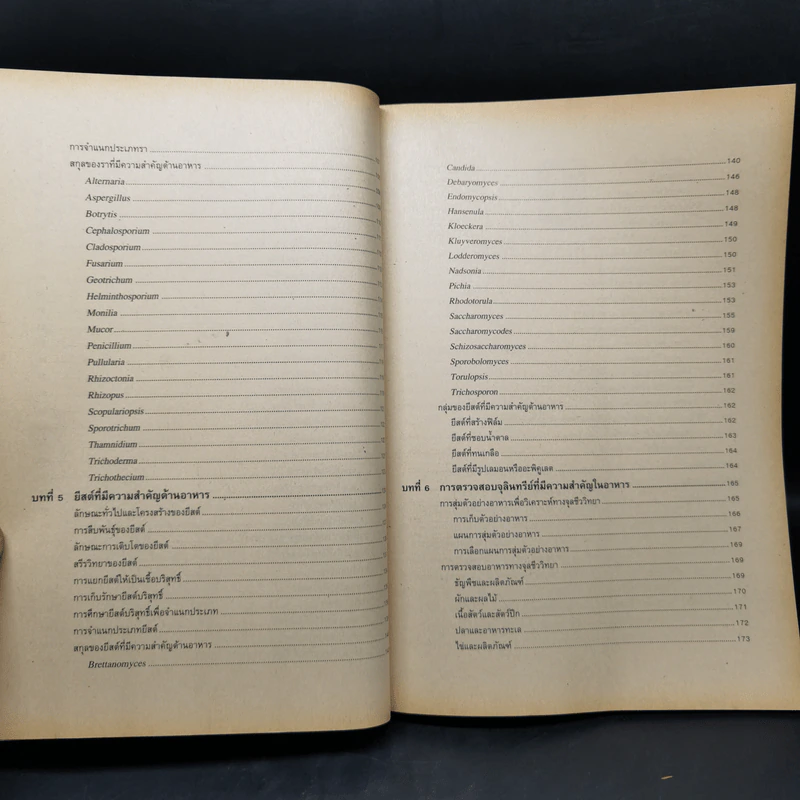 การจำแนกประเภทรา
สกุลของราที่มีความสำคัญด้านอาหาร
Alternaria
Aspergillus
Botrytis
Cephalosporium
Cladosporium
Fusarium
Geotrichum
Helminthosporium
Monilia
Mucor
Penicillium
Pullularia
Rhizoctonia
Rhizopus
Scopulariopsis
Sporotrichum
Thamnidium
Trichoderma
Trichothecium
บทที่ 5 ยีสต์ที่มีความสำคัญด้านอาหาร
ลักษณะทั่วไปและโครงสร้างของยีสต์
การสืบพันธุ์ของยีสต์
ลักษณะการเติบโตของยีสต์
สรีรวิทยาของยีสต์
การแยกยีสต์ให้เป็นเชื้อบริสุทธิ์
การเก็บรักษายีสต์บริสุทธิ์
การศึกษายีสต์บริสุทธิ์เพื่อจำแนกประเภท
การจำแนกประเภทยีสต์
สกุลของยีสต์ที่มีความสำคัญด้านอาหาร
Brettanomyces
Candida 140
Debaryomyces 146
Endomycopsis 148
Hansenula 148
Kloeckera 149
Kluyveromyces 150
Lodderomyces 150
Nadsonia 151
Pichia 153
Rhodotorula 153
Saccharomyces 155
Saccharomycodes 159
Schizosaccharomyces 160
Sporobolomyces 161
Torulopsis 161
Trichosporon 162
กลุ่มของยีสต์ที่มีความสำคัญด้านอาหาร 162
ยีสต์ที่สร้างฟิล์ม 162
ยีสต์ที่ชอบน้ำตาล 163
ยีสต์ที่ทนเกลือ 164
ยีสต์ที่มีรูปเลมอนหรืออะพิคูเลต 164
บทที่ 6 การตรวจสอบจุลินทรีย์ที่มีความสำคัญในอาหาร 165
การสุ่มตัวอย่างอาหารเพื่อวิเคราะห์ทางจุลชีววิทยา 165
การเก็บตัวอย่างอาหาร 166
แผนการสุ่มตัวอย่างอาหาร 167
การเลือกแผนการสุ่มตัวอย่างอาหาร 169
การตรวจสอบอาหารทางจุลชีววิทยา 169
ธัญพืชและผลิตภัณฑ์ 169
ผักและผลไม้ 170
เนื้อสัตว์และสัตว์ปีก 171
ปลาและอาหารทะเล 172
ไข่และผลิตภัณฑ์ 173